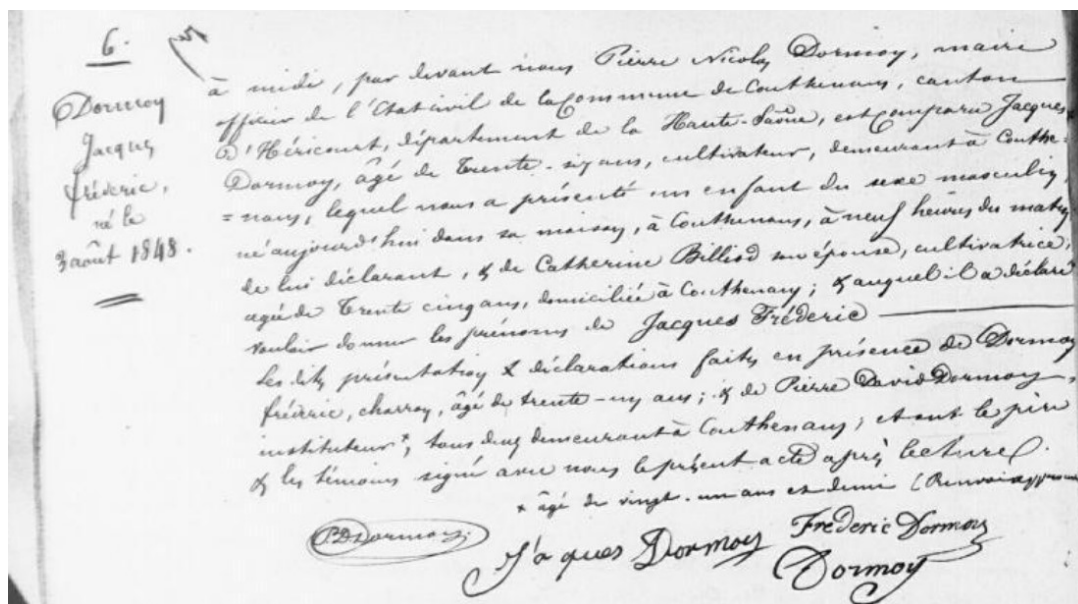 6.
Dormoy
Jacques
fréderic,
né le
3 août 1848.
à midi, par devant nous Pierre Nicolas Dormoy, maire
officier de l'Etat civil de la Commune de Couthenans, canton
d'Héricourt, département de la Haute-Saône, est Comparu Jacques
Dormoy, âgé de Trente-six ans, cultivateur, demeurant à Couthe-
=nans, lequel nous a présenté un enfant du sexe masculin,
né aujourd'hui dans sa maison, à Couthenans, à neuf heures du matin,
de lui déclarant, & de Catherine Billiod son épouse, cultivatrice,
agée de Trente cinq ans, domiciliée à Couthenans; & auquel il a déclaré
vouloir donner les prénoms de Jacques Fréderic
Les dites présentation & déclarations faites en présence de Dormoy
fréderic, charron, âgé de trente-un ans; & de Pierre David Dormoy,
instituteur*, tous deux demeurant à Couthenans; et ont le père
& les témoins signé avec nous le présent acte après lecture.
* âgé de vingt-un ans et demi (Renvoi approuvé
PDDormoy.
Jaques Dormoy
Fréderic Dormoy
Dormoy